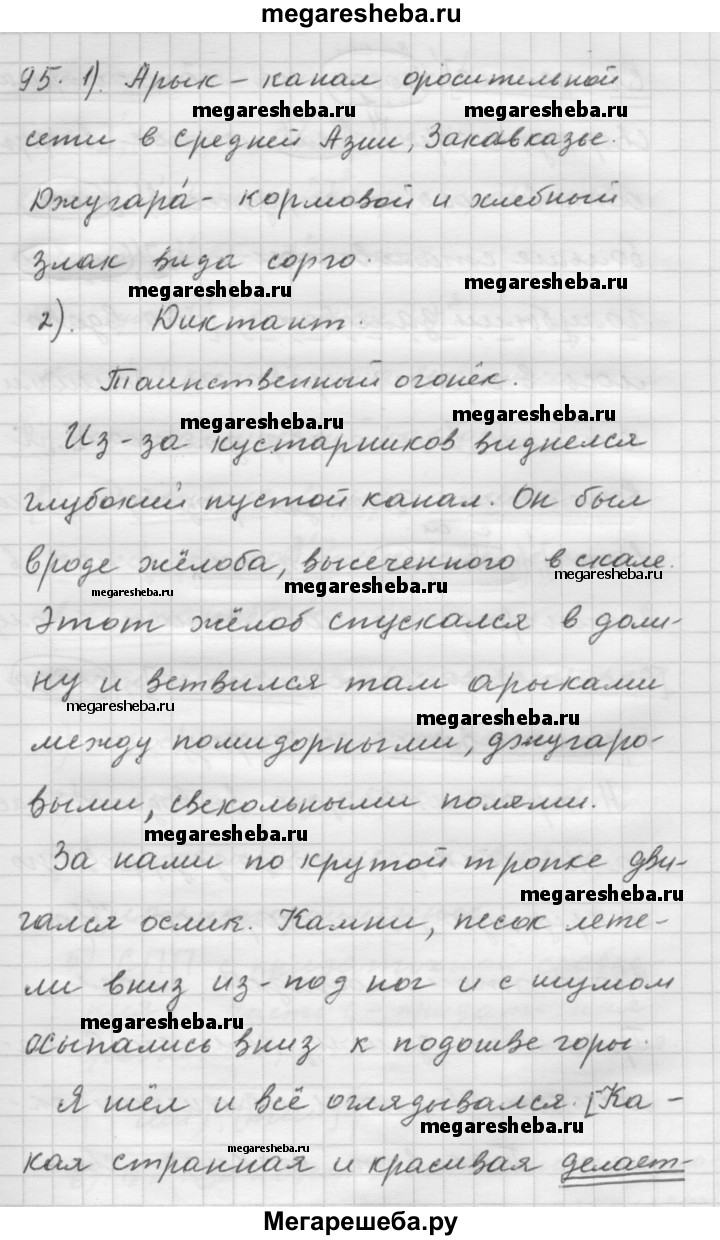 megaresheba.ru
95. 1). Арык – канал оросительной
megaresheba.ru megaresheba.ru
сети в Средней Азии, Закавказье.
Джугара́ – кормовой и хлебный
злак вида сорго.
megaresheba.ru megaresheba.ru
2). Диктант.
Таинственный огонёк.
megaresheba.ru megaresheba.ru
Из-за кустарников виднелся
глубокий пустой канал. Он был
вроде жёлоба, высеченного в скале.
megaresheba.ru megaresheba.ru megaresheba.ru
Этот жёлоб спускался в доли-
ну и ветвился там арыками
megaresheba.ru megaresheba.ru
между помидорными, джугаро-
выми, свекольными полями.
megaresheba.ru
За нами по крутой тропке дви-
megaresheba.ru
гался ослик. Камни, песок лете-
ли вниз из-под ног и с шумом
megaresheba.ru
осыпались вниз к подошве горы.
Я шёл и всё оглядывался. [Ка-
megaresheba.ru
megaresheba.ru
кая странная и красивая делает-
Мегарешеба.ру